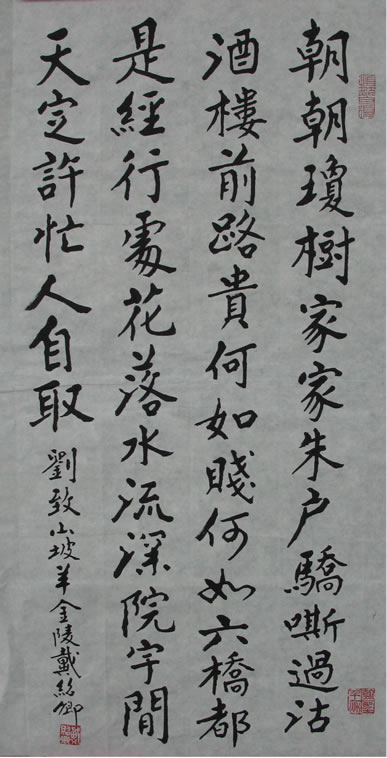 朝朝瓊樹家家朱户驕嘶過沽
酒樓前路貴何如賤何如六橋都
是經行處花落水流深院宇閒
天定許忙人自取
劉致山坡羊金陵戴紹卿